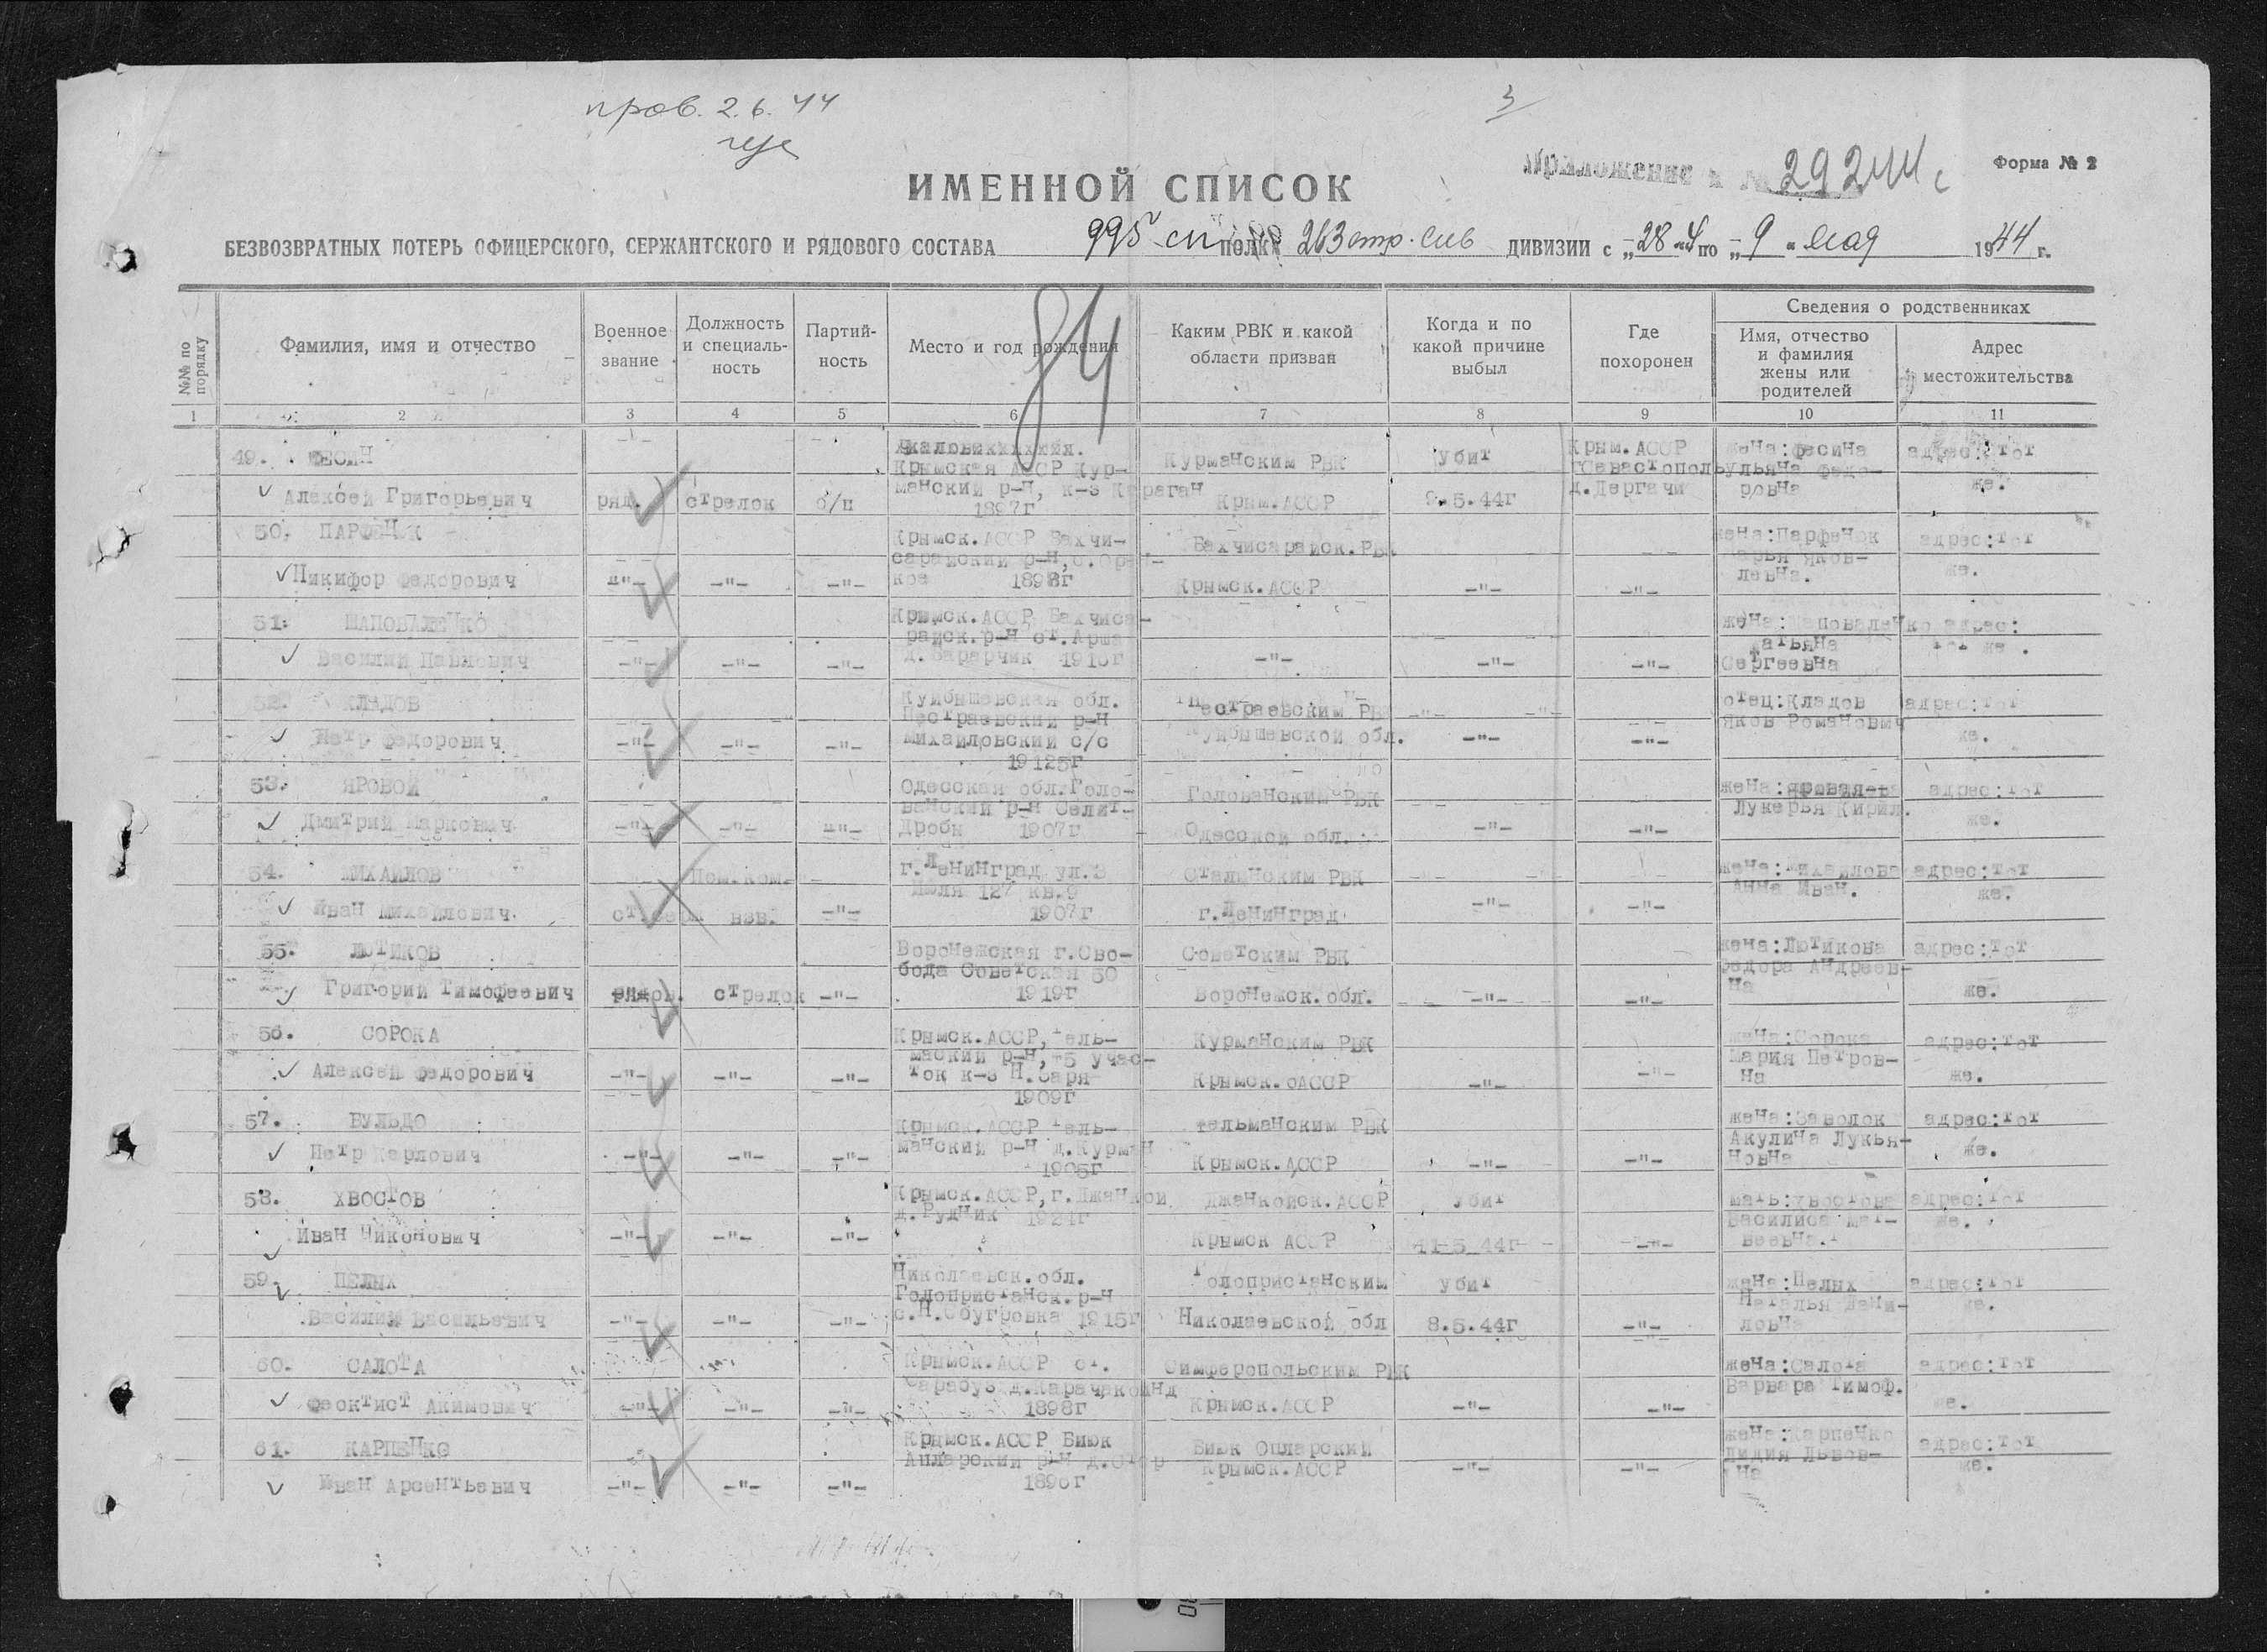 пров. 2.6.44
3
Приложение к № 29244 с
Форма № 2
ИМЕННОЙ СПИСОК
БЕЗВОЗВРАТНЫХ ПОТЕРЬ ОФИЦЕРСКОГО, СЕРЖАНТСКОГО И РЯДОВОГО СОСТАВА 995 сп ПОЛКА 263 стр. Сив ДИВИЗИИ с „28" 4 по „9" мая 1944 г.
84
№№ по порядку
Фамилия, имя и отчество
Военное звание
Должность и специаль-ность
Партий-ность
Место и год рождения
Каким РВК и какой области призван
Когда и по какой причине выбыл
Где похоронен
Сведения о родственниках
Имя, отчество и фамилия жены или родителей
Адрес местожительства
1 2 3 4 5 6 7 8 9 10 11
49. ФЕСИН Крымская АССР Кур- Курманским РВК убит Крым.АССР жена:Фесина адрес:тот
Алексей Григорьевич ряд. стрелок б/п манский р-н, к-з Караган Крым.АССР 9.5.44г г Севастополь д.Дергачи Ульяна Федо- же.
1897г ровна
50. ПАРФЕНЮК Крымск.АССР Бахчи- Бахчисарайск.РВК жена:Парфенюк адрес:тот
Никифор Федорович -"- -"- -"- сарайский р-н, Крымск.АССР -"- -"- Яков- же.
кое 1898г левна.
51. ШАПОВАЛЕНКО Крымск.АССР Бахчиса- жена:Шаповаленко адрес:
Василий -"- -"- -"- райск.р-н -"- -"- -"- Татьяна тот же.
д. 1910г Сергеевна
52. КЛАДОВ Куйбышевская обл. Пестраевским РВК -"- отец:Кладов адрес:тот
Петр Федорович -"- -"- -"- Пестраевский р-н Куйбышевской обл. -"- -"- Яков Романович же.
Михайловский с/с
53. ЯРОВОЙ Одесская обл.Голо- Голованским РВК жена:Яровая адрес:тот
Дмитрий Маркович -"- -"- -"- ванский р-н Селит- Одесской обл. -"- -"- Лукерья Кирил. же.
дробы 1907г
54. МИХАЙЛОВ Пом.ком. г.Ленинград ул.3 Сталинским РВК жена:Михайлова адрес:тот
Иван Михайлович взв. -"- Июля 127 кв.9 г.Ленинград -"- -"- Анна Иван. же.
1907г
55. ЛЮТИКОВ Воронежская г.Сво- Советским РВК жена:Лютикова адрес:тот
Григорий Тимофеевич рядов. стрелок -"- бода Советская 50 Воронежск.обл. -"- -"- Федора Андреев- же.
1919г на
56. СОРОКА Крымск.АССР,Тель- Курманским РВК жена:Сорока адрес:тот
Алексей Федорович -"- -"- -"- манский р-н, 5 учас- Крымск.АССР -"- -"- Мария Петров- же.
ток к-з Н.Заря на
1909г
57. БУЛЬДО Крымск.АССР Тель- Тельманским РВК жена:Заволок адрес:тот
Петр Карлович -"- -"- -"- манский р-н д.Курман Крымск.АССР -"- -"- Акулина Лукья- же.
1905г новна
58. ХВОСТОВ Крымск.АССР, г.Джанкой Джанкойск.АССР убит мать:Хвостова адрес:тот
Иван Никонович -"- -"- -"- д.Рудник 1924г Крымск АССР 11-5-44г -"- Василиса Мат- же.
веевна.
59. ПЕЛЫХ Николаевск.обл. Голопристанским убит жена:Пелых адрес:тот
Василий Васильевич -"- -"- -"- Голопристанск.р-н Николаевской обл 8.5.44г -"- Наталья Дани- же.
с.Н.Збугровка 1915г ловна
60. САЛОТА Крымск.АССР ст. Симферопольским РВК жена:Салота адрес:тот
Феоктист Акимович -"- -"- -"- Сарабуз Крымск.АССР -"- -"- Варвара Тимоф. же.
1898г
61. КАРПЕНКО Крымск.АССР Биюк Биюк Онларский жена:Карпенко адрес:тот
Иван Арсентьевич -"- -"- -"- р-н Крымск.АССР -"- -"- Лидия Львов- же.
на